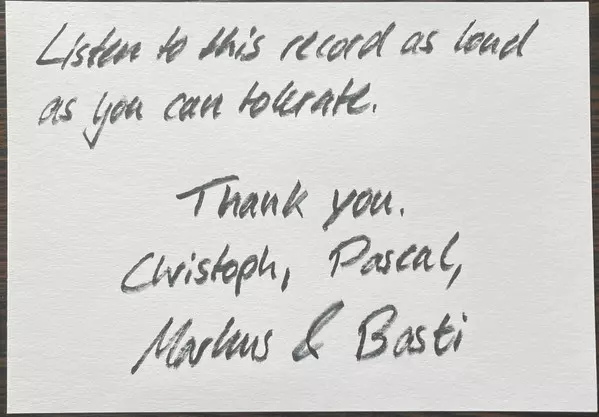 Listen to this record as loud
as you can tolerate.
Thank you.
Christoph, Pascal,
Markus & Basti